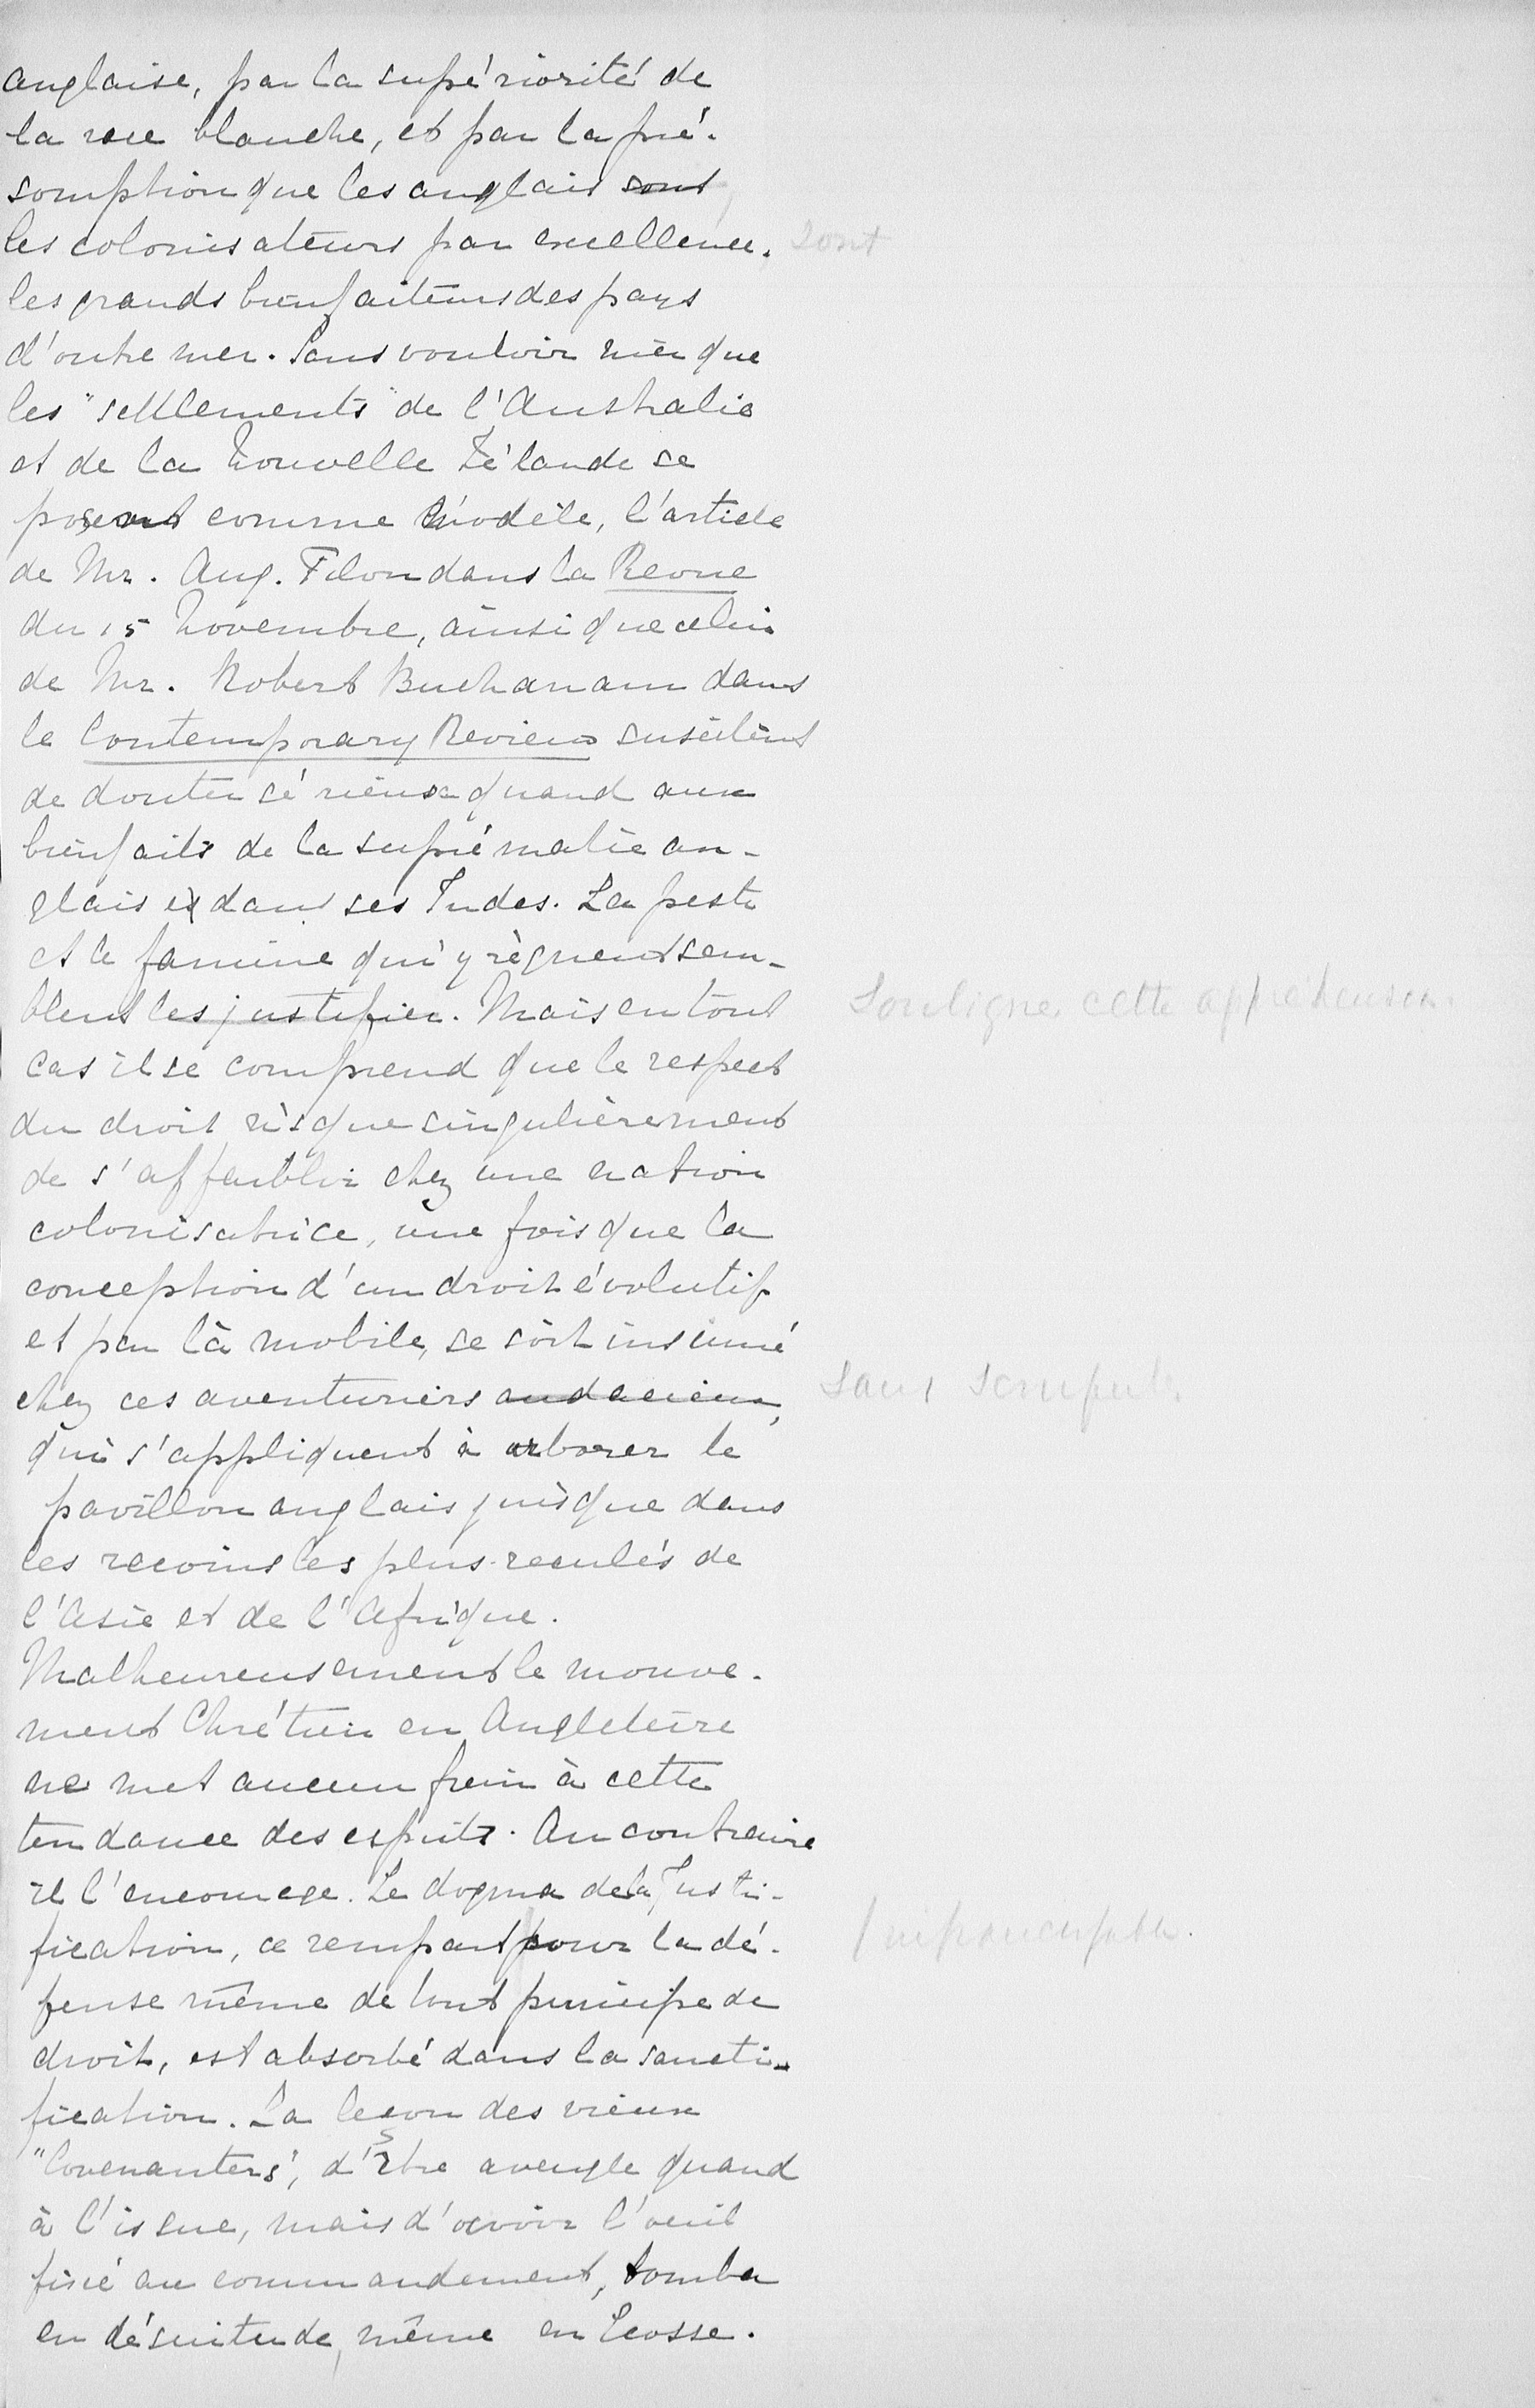 anglaise, par la supériorité de
la race blanche, et par la pré-
somption que les anglais sont
les colonisateurs par excellence, sont
les grands bienfaiteurs des pays
d'outre mer. Sans vouloir nier que
les "settlements" de l'Australie
et de la Nouvelle Zélande se
posent comme modèle, l'article
de Mr. Aug. Filon dans la Revue
du 15 Novembre, ainsi que celui
de Mr. Robert Buchanann dans
le Contemporary Review suscitent
de doutes sérieux quand aux
bienfaits de la suprématie an-
glaise dans ses Indes. La peste
et la famine qui y règnent sem-
blent les justifier. Mais en tout
Souligne cette appréhension.
cas il se comprend que le respect
du droit risque singulièrement
de s'affaiblir chez une nation
colonisatrice, une fois que la
conception d'un droit évolutif
et par là mobile, se soit insinué
chez ces aventuriers audacieux,
sans scrupule
qui s'appliquent à arborer le
pavillon anglais jusque dans
les recoins les plus reculés de
l'Asie et de l'Afrique.
Malheureusement le mouve-
ment Chrétien en Angleterre
ne met aucun frein à cette
tendance des esprits. Au contraire
il l'encourage. Le dogma de la Justi-
fication, ce rempart pour la dé-
fense même de tout principe de
droit, est absorbé dans la sancti-
fication. La leçon des vieux
"Covenanters", d'être aveugle quand
à l'issue, mais d'avoir l'oeuil
fixé au commandement, tomba
en désuitude, même en Ecosse.